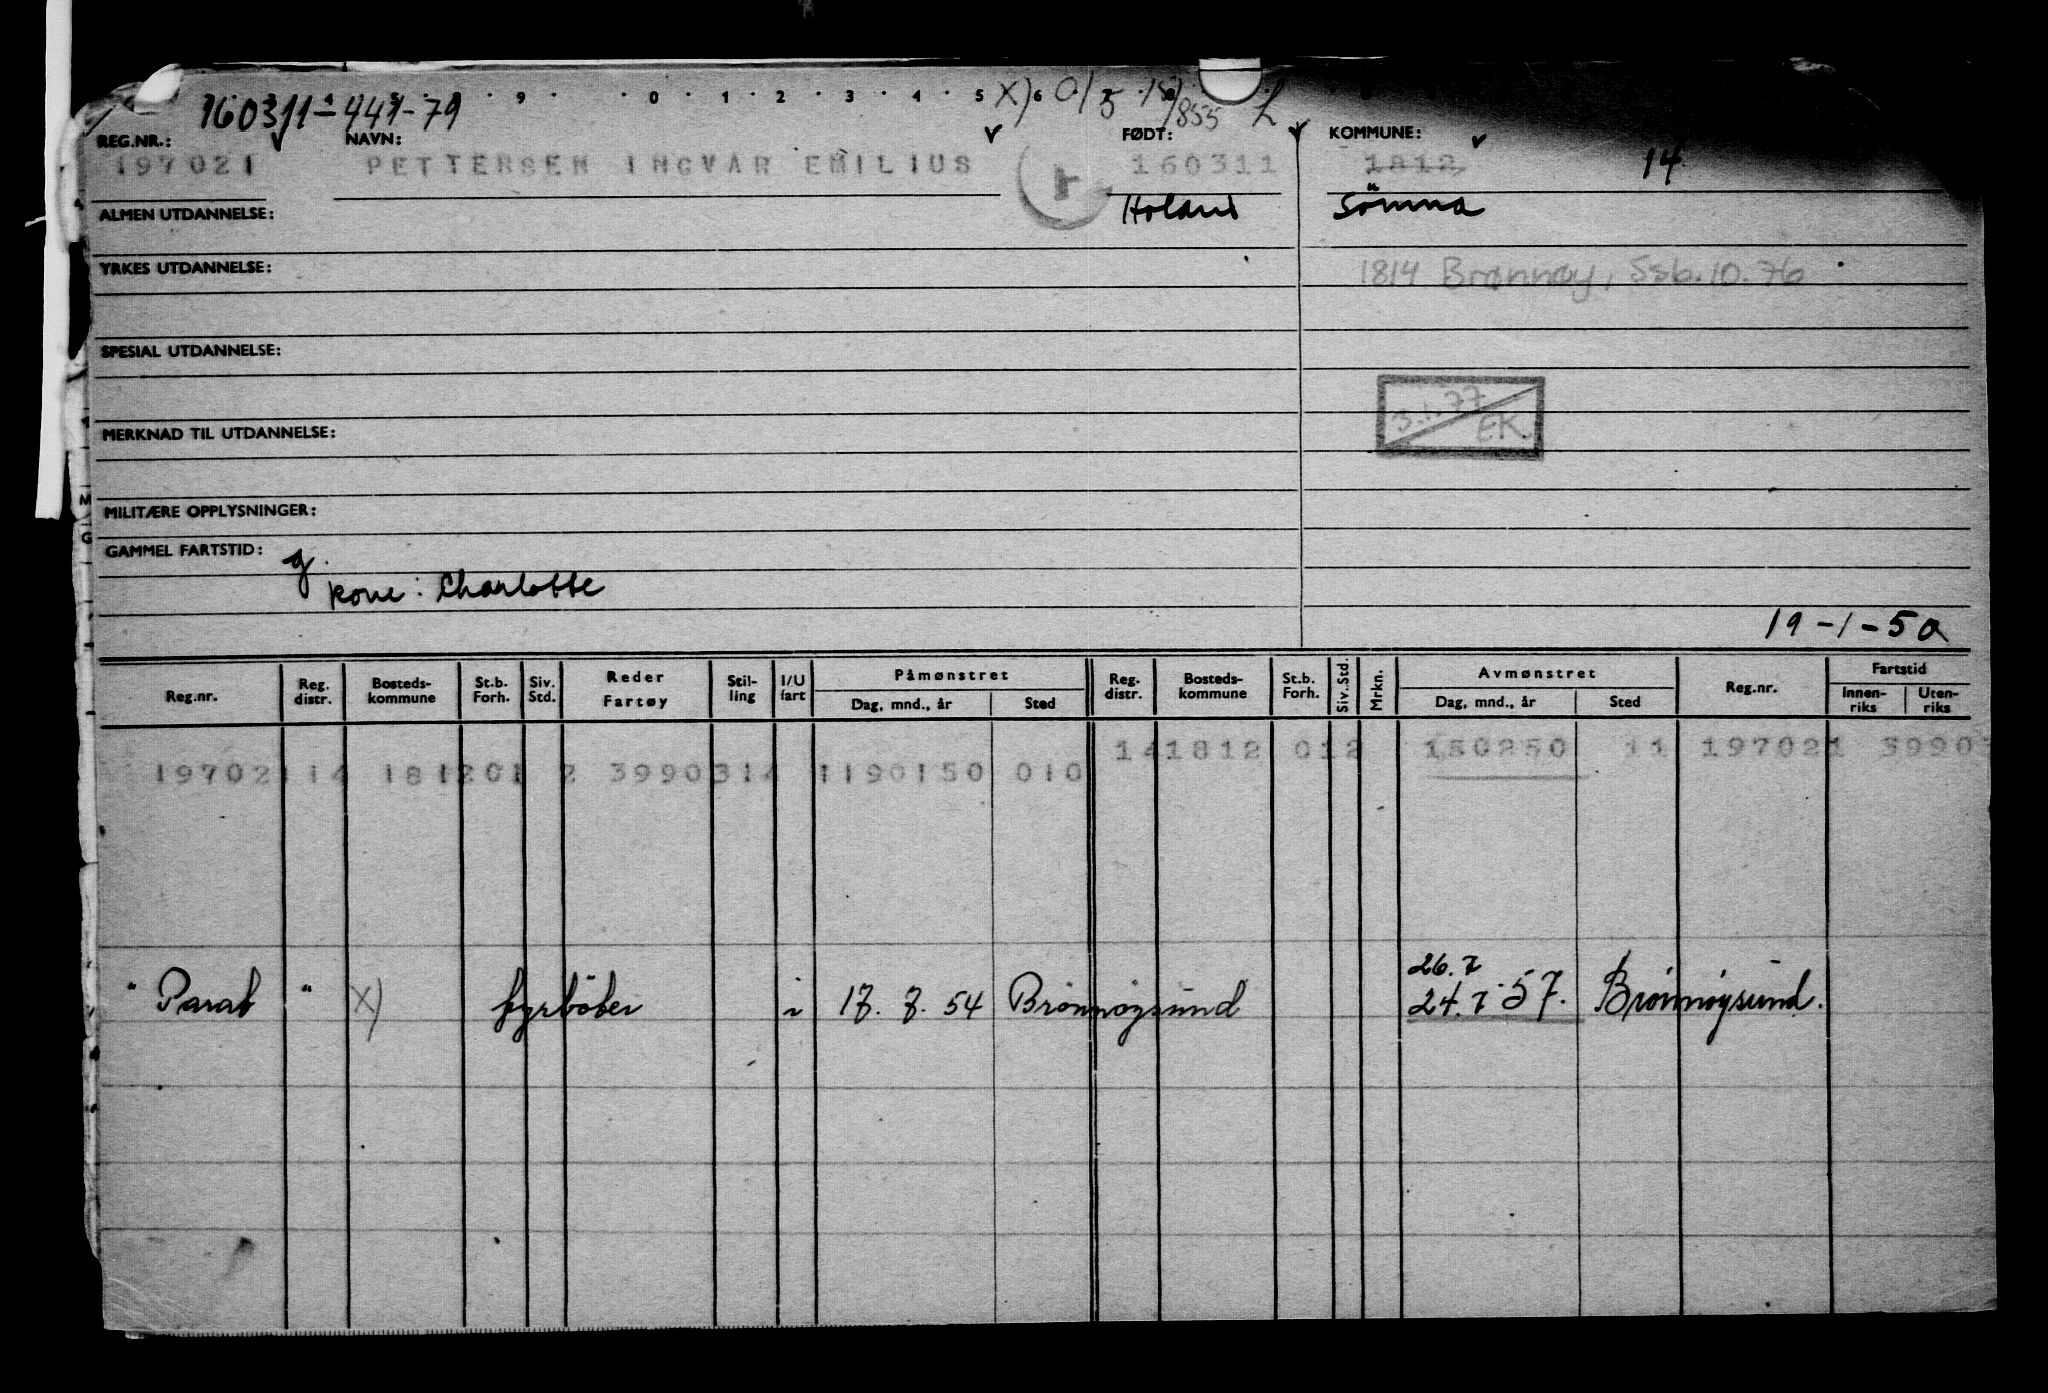 160311-441-79
9 0 1 2 3 4 5 X) 6
1855
REG.NR.: NAVN: FØDT: KOMMUNE:
197021 PETTERSEN INGVAR EMILIUS r 160311 1812 14
ALMEN UTDANNELSE: Sömna
YRKES UTDANNELSE: 1814 Brønnøy, Ssb.10.76
SPESIAL UTDANNELSE:
3.1.77 EK.
MERKNAD TIL UTDANNELSE:
M
MILITÆRE OPPLYSNINGER:
G
GAMMEL FARTSTID: g.
kone: Charlotte
19-1-50
Reg.nr. Reg. distr. Bosteds-kommune St.b. Forh. Siv. Std. Reder Fartøy Stil-ling I/U fart Påmønstret Dag, mnd., år Sted Reg. distr. Bosteds-kommune St.b. Forh. Siv.Std. Mrkn. Avmønstret Dag, mnd., år Sted Reg.nr. Fartstid Innen-riks Uten-riks
141812 012 150250 11 197021 3990
197021 14 181201 2 3990314 1190150 010
26.7
" Parat " X) fyrböter i 17. 7. 54 Brønnøysund 24.7 57. Brønnøysund.